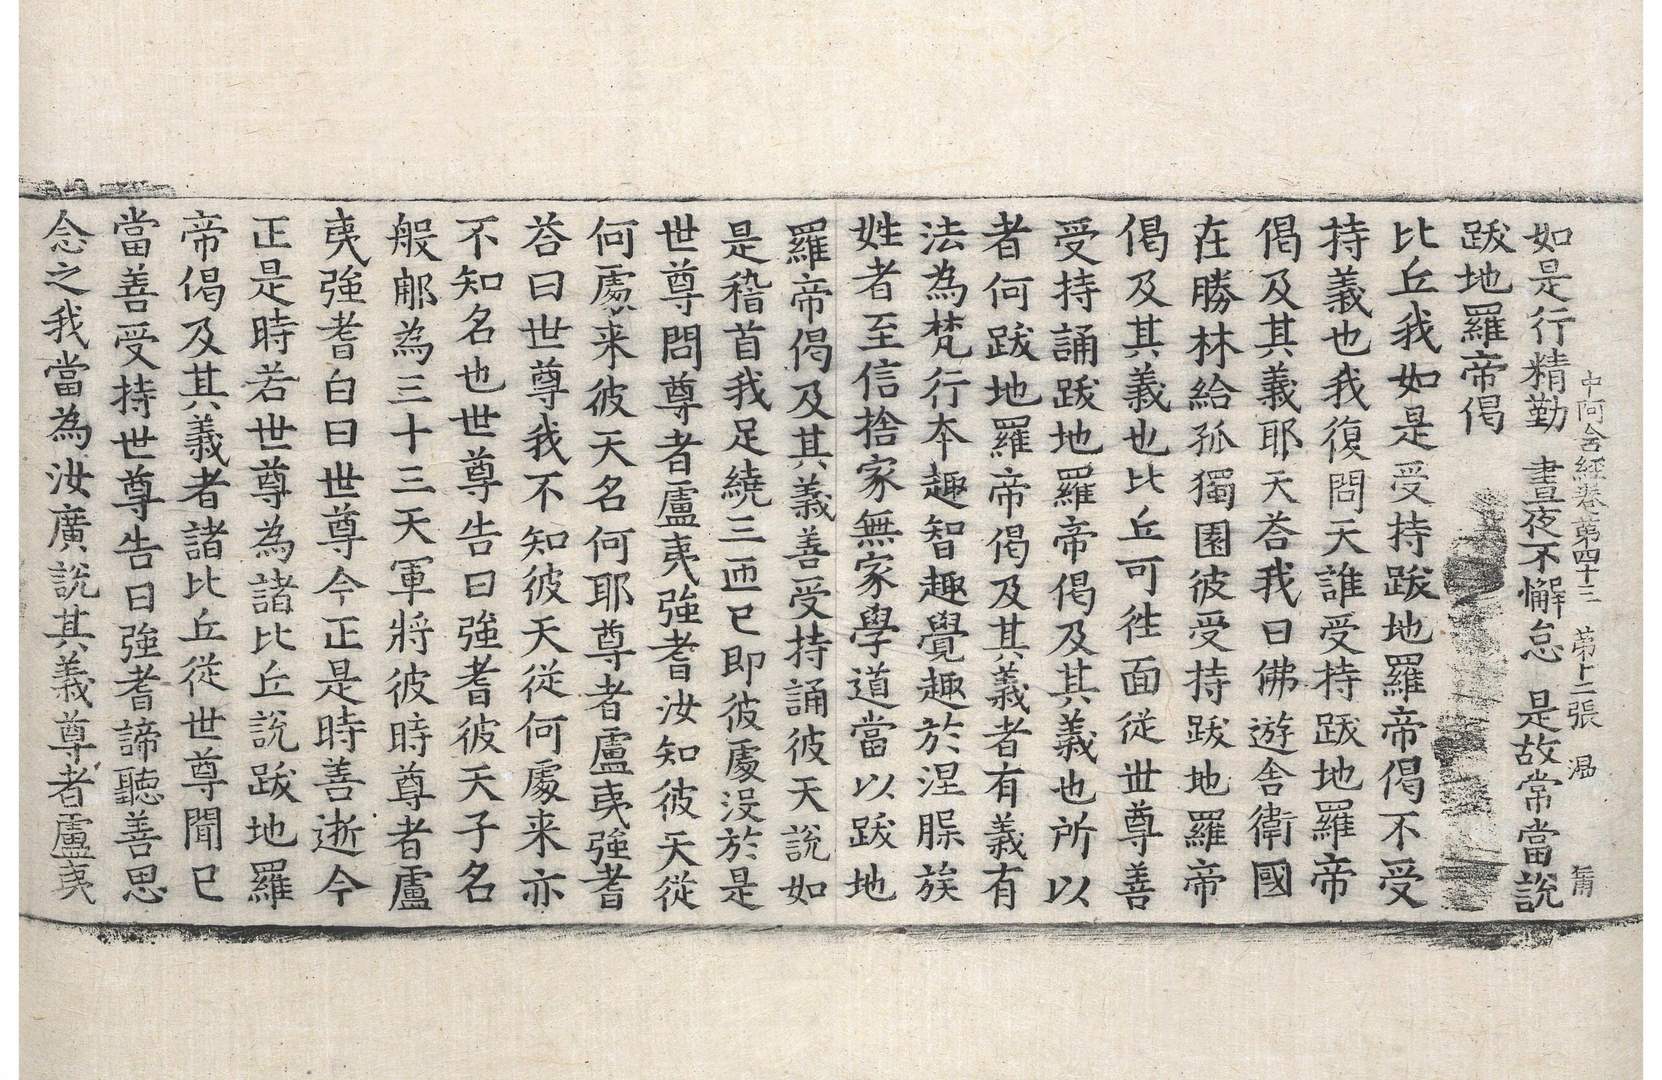 中阿含經卷第四十三 第十二張 温
如是行精勤 晝夜不懈怠 是故常當說
跋地羅帝偈
比丘我如是受持跋地羅帝偈不受
持義也我復問天誰受持跋地羅帝
偈及其義耶天荅我曰佛遊舍衛國
在勝林給孤獨園彼受持跋地羅帝
偈及其義也比丘可徃面從世尊善
受持誦跋地羅帝偈及其義也所以
者何跋地羅帝偈及其義者有義有
法為梵行本趣智趣覺趣於涅槃族
姓者至信捨家無家學道當以跋地
羅帝偈及其義善受持誦彼天說如
是稽首我足繞三匝已即彼處没於是
世尊問尊者盧夷強耆汝知彼天從
何處来彼天名何耶尊者盧夷強耆
荅曰世尊我不知彼天從何處来亦
不知名也世尊告曰強耆彼天子名
般那為三十三天軍將彼時尊者盧
夷強耆白曰世尊今正是時善逝今
正是時若世尊為諸比丘說跋地羅
帝偈及其義者諸比丘從世尊聞已
當善受持世尊告曰強耆諦聽善思
念之我當為汝廣說其義尊者盧夷